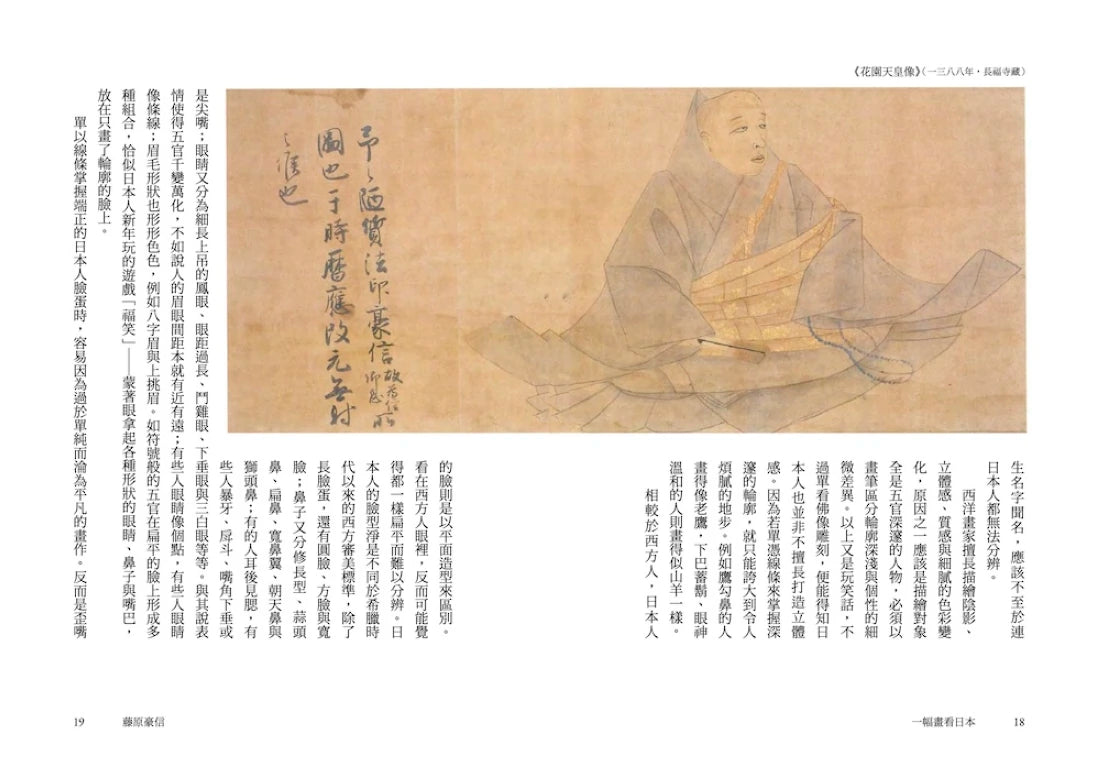 《花園天皇像》（一三八八年，長福寺藏）
予之陋質法印豪信故為信卿息所
圖也于時曆應改元無射
之候也
生名字聞名，應該不至於連
日本人都無法分辨。
西洋畫家擅長描繪陰影、
立體感、質感與細膩的色彩變
化，原因之一應該是描繪對象
全是五官深邃的人物，必須以
畫筆區分輪廓深淺與個性的細
微差異。以上又是玩笑話，不
過單看佛像雕刻，便能得知日
本人也並非不擅長打造立體
感。因為若單憑線條來掌握深
邃的輪廓，就只能誇大到令人
煩膩的地步。例如鷹勾鼻的人
畫得像老鷹，下巴蓄鬍、眼神
溫和的人則畫得似山羊一樣。
相較於西方人，日本人
一幅畫看日本
18
的臉則是以平面造型來區別。
看在西方人眼裡，反而可能覺
得都一樣扁平而難以分辨。日
本人的臉型淨是不同於希臘時
代以來的西方審美標準，除了
長臉蛋，還有圓臉、方臉與寬
臉；鼻子又分修長型、蒜頭
鼻、扁鼻、寬鼻翼、朝天鼻與
獅頭鼻；有的人耳後見腮，有
些人暴牙、戽斗、嘴角下垂或
是尖嘴；眼睛又分為細長上吊的鳳眼、眼距過長、鬥雞眼、下垂眼與三白眼等等。與其說表
情使得五官千變萬化，不如說人的眉眼間距本就有近有遠；有些人眼睛像個點，有些人眼睛
像條線；眉毛形狀也形形色色，例如八字眉與上挑眉。如符號般的五官在扁平的臉上形成多
種組合，恰似日本人新年玩的遊戲「福笑」——蒙著眼拿起各種形狀的眼睛、鼻子與嘴巴，
放在只畫了輪廓的臉上。
單以線條掌握端正的日本人臉蛋時，容易因為過於單純而淪為平凡的畫作。反而是歪嘴
藤原豪信
19